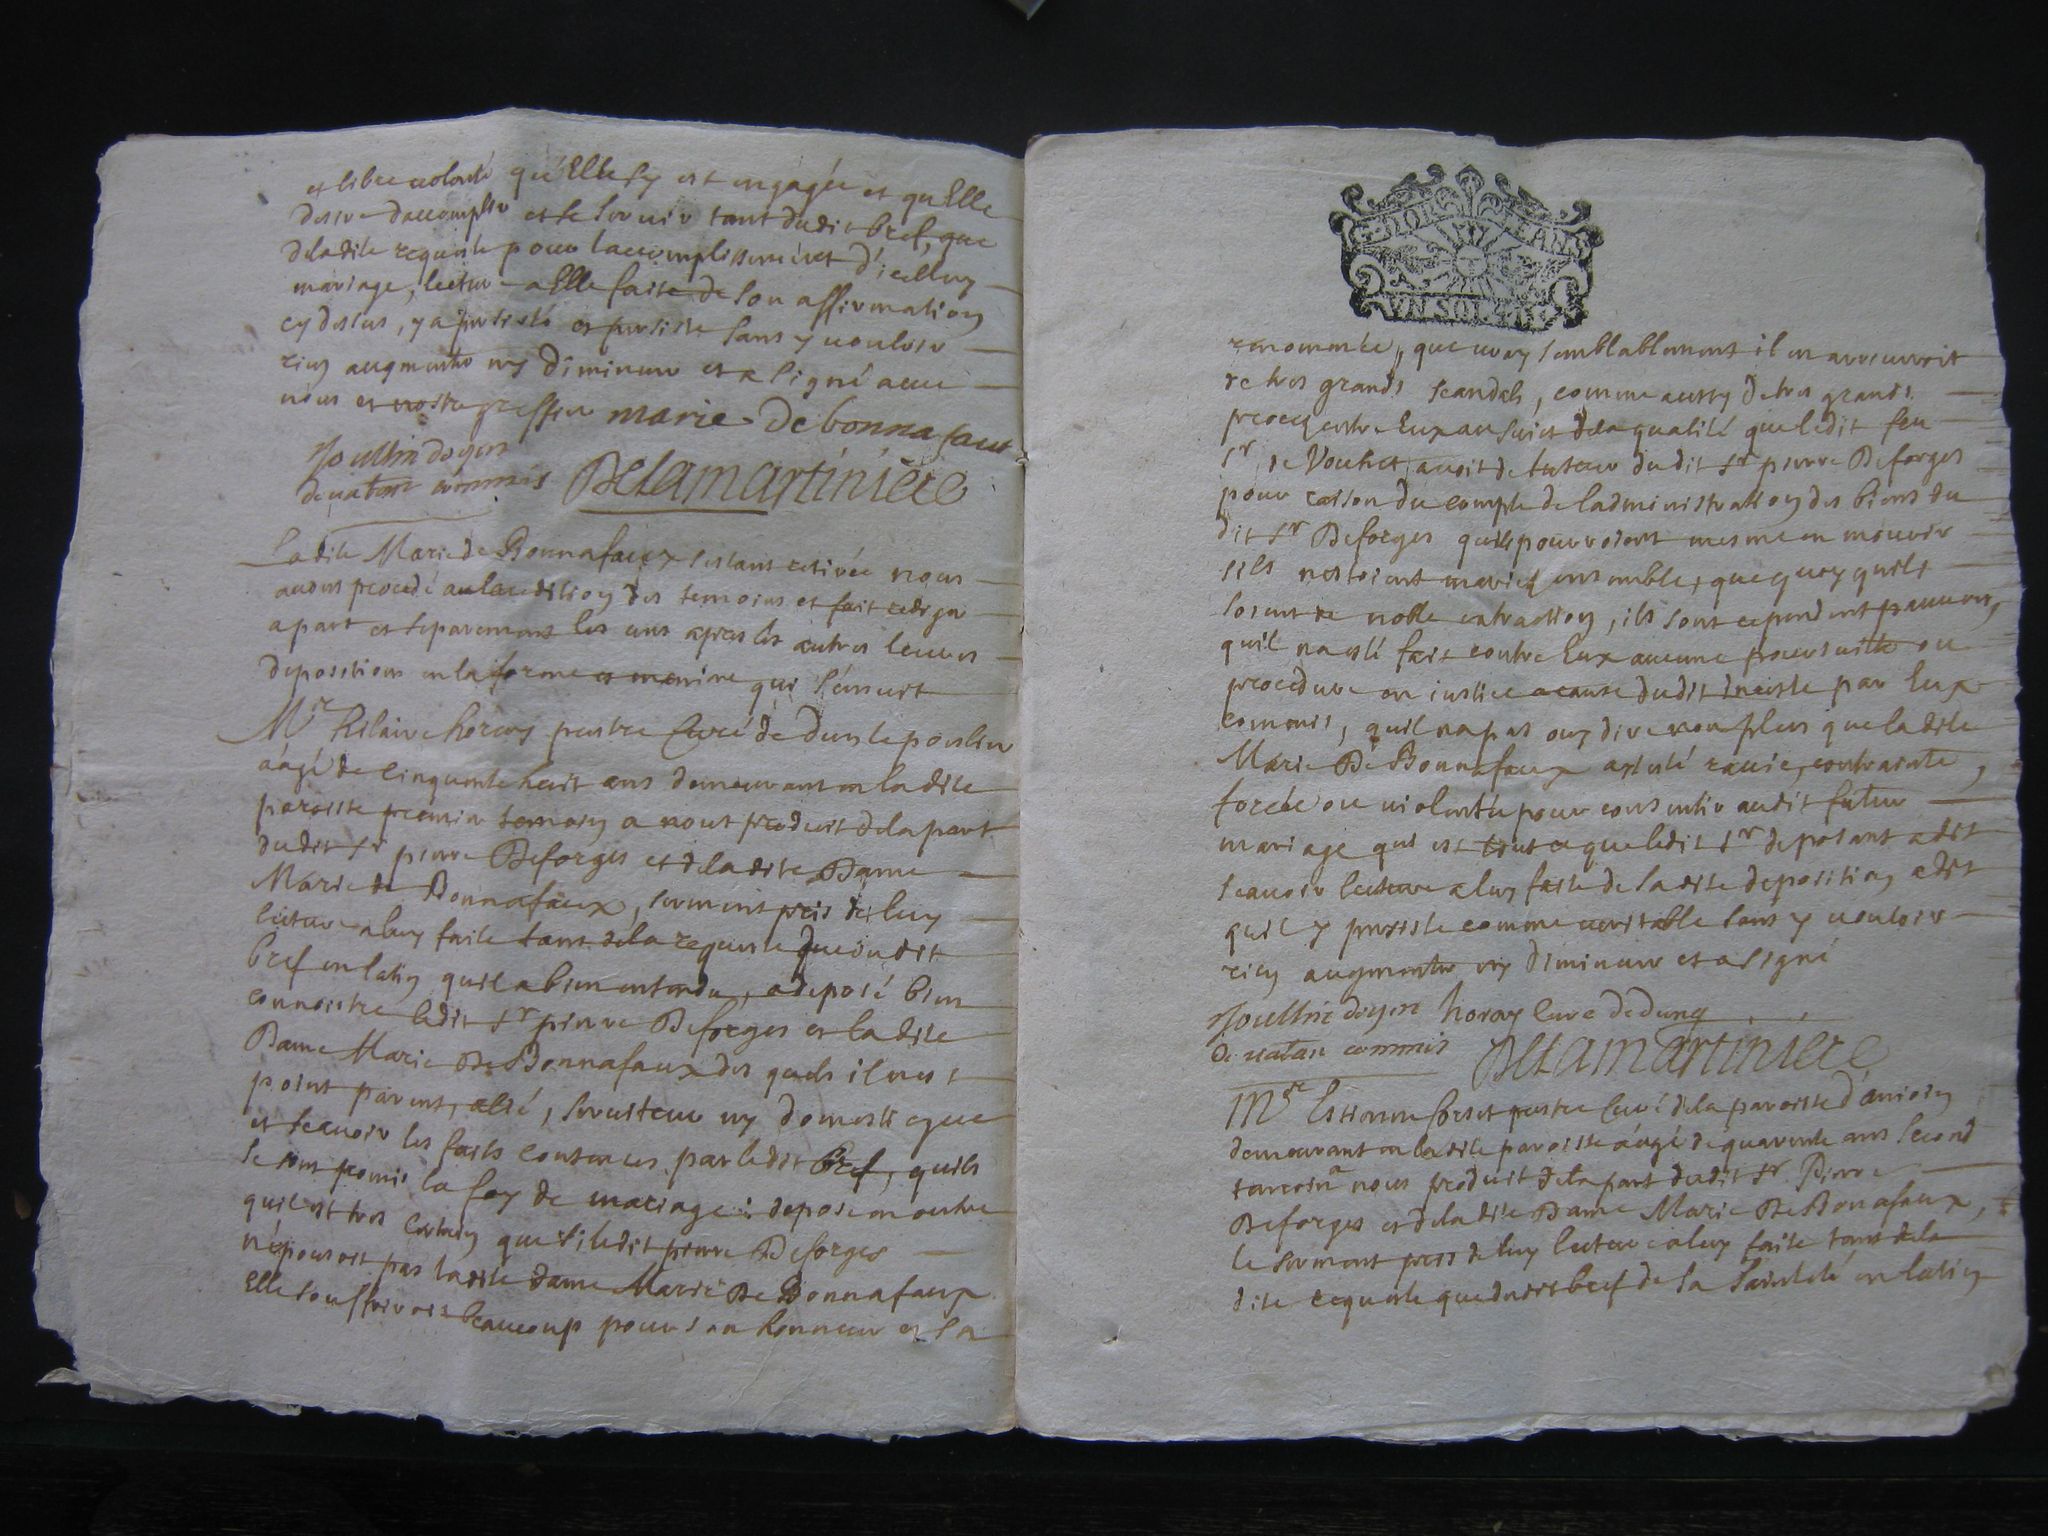 et libre volonté qu'Elle sy est engagée et qu Elle
desire daccomplir et se servir tant dudit bref, que
deladite requeste pour laccomplissement d'icelluy
mariage, lecture a Elle faite de son affirmation
cy dessus, y a persisté et persiste sans y vouloir
rien augmenter ny diminuer et a signé avec
nous et nostre greffier marie de bonnafaux
Joullin doyen
de vatan commis Delamartiniere
Ladite Marie de Bonnafaux sestant retirée nous
avons procedé a laudition des temoins et fait rediger
apart et separement les uns apres les autres leurs
depositions en la forme et maniere qui s'ensuit
Mr hilaire horay prestre Curé de dun le poislier
áàgé de cinquante huit ans demeurant en ladite
paroisse premier temoin a nous produit de la part
dudit Sr pierre Deforges et deladite Dame
Marie de Bonnafaux, serment pris de luy
lecture a luy faite tant de la requeste que dudit
bref en latin quil a bien entendu, a deposé bien
connoistre ledit Sr pierre Deforges et ladite
Dame Marie De Bonnafaux des quels il nest
point parent, alié, serviteur ny domestique
et scavoir les faits contenues par ledit Bref, quils
se sont promis la foy de mariage : depose en outre
quil est tres certain que si ledit pierre Deforges
népousoit pas ladite dame Marie De Bonnafaux
Elle souffriroit beaucoup pour son honneur et sa
G. D'ORLEANS
UN SOL
renommée, que semblablement il en arriveroit
de tres grands scandels, comme aussy de tres grands
proces entre Eux au suiet dela qualité que ledit feu
Sr de Vouhet avoit de tuteur dudit Sr pierre Deforges
pour raison du compte de ladministration des biens du
dit Sr Deforges quils pourroient mesme en mourir
sils nestoient mariez ensemble, que quoy quils
soient de noble extraction, ils sont cependent pauvres,
quil na esté fait contre Eux aucune poursuitte ou
procedure en iustice a cause dudit inceste par Eux
commis, quil na pas ouy dire non plus que ladite
Marie De Bonnafaux ayt esté ravie, contrainte,
forcée ou violentée pour consentir audit futur
mariage qui est tout ce que ledit Sr deposant a dit
scavoir lecture a luy faite de sadite deposition a dit
quil y persiste comme veritable sans y vouloir
rien augmenter ny diminuer et a signé
Joullin doyen horay Curé de dung
de vatan commis Delamartiniere
Mre Estienne prestre Curé de la paroisse d'
demeurant en ladite paroisse áàgé de quarente ans second
temoin a nous produit dela part dudit Sr Pierre
Deforges et deladite Dame Marie De Bonafaux,
le serment pris de luy lecture a luy faite tant dela
dite requeste que dudit bref de sa Sainteté en latin